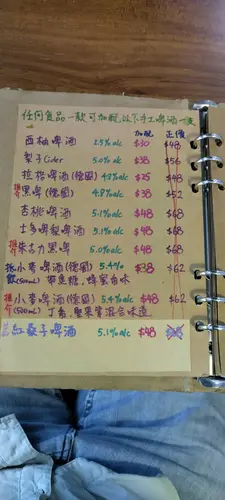 任何食品一款可加配以下手工啤酒一支
加配 正價
西柚啤酒 2.5%alc $30 $48
梨子Cider 5.0%alc $38 $56
拉格啤酒(德國) 4.8%alc $25 $48
推介 黑啤(德國) 4.8%alc $38 $52
杏桃啤酒 5.1%alc $48 $68
士多啤梨啤酒 5.1%alc $48 $68
推介 朱古力黑啤 5.0%alc $48 $68
小麥啤酒(德國) 5.4% $38 $62
(500ml) 帶焦糖,蜂蜜香味
推介 小麥啤酒(德國) 5.4%alc $48 $62
(500ml) 丁香,堅果等混合味道
紅桑子啤酒 5.1%alc $48